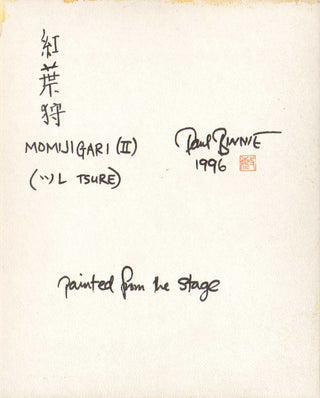 紅葉狩
MOMIJIGARI (II)
(ツレ TSURE)
Paul BINNIE
1996
painted from the stage